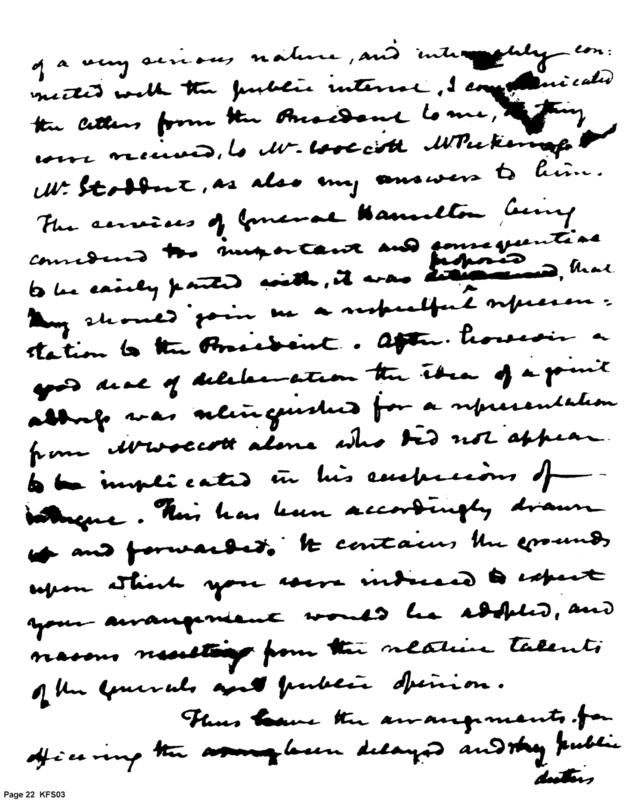 of a very serious nature, and intimately con-
nected with the public interest, I communicated
the letters from the President to me, as they
were received, to Mr. Wolcott Mr Pickering &
Mr. Stoddert, as also my answers to him.
The services of General Hamilton being
considered too important and consequential
proposed
to be easily parted with, it was determined, that
they should join in a respectful represen-
tation to the President. After however a
good deal of deliberation the idea of a joint
address was relinquished for a representation
from Mr Wolcott alone who did not appear
to be implicated in his suspicions of
intrigue. This has been accordingly drawn
up and forwarded. It contains the grounds
upon which you were induced to expect
your arrangement would be adopted, and
reasons resulting from the relative talents
of the Generals and public opinion.
Thus have the arrangements for
officering the army been delayed and my public
duties
Page 22 KFS03